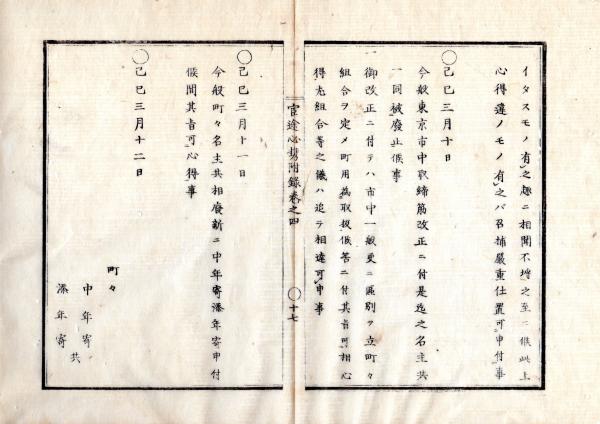 イタスモノ有之趣ニ相聞不埒之至ニ候此上
心得違ノモノ有之バ召捕嚴重仕置可申付事
○己巳三月十日
今般東京市中取締筋改正ニ付是迄之名主共
一同被廢止候事
一御改正ニ付テハ市中一般更ニ區別ヲ立町々
組合ヲ定メ町用為取扱候筈ニ付其旨可相心
得尤組合等之儀ハ追テ相達可申事
官途必携附錄卷之四
○十七
○己巳三月十一日
今般町々名主共相廢新ニ中年寄添年寄申付
候間其旨可心得事
○己巳三月十二日
町々
中年寄
添年寄共